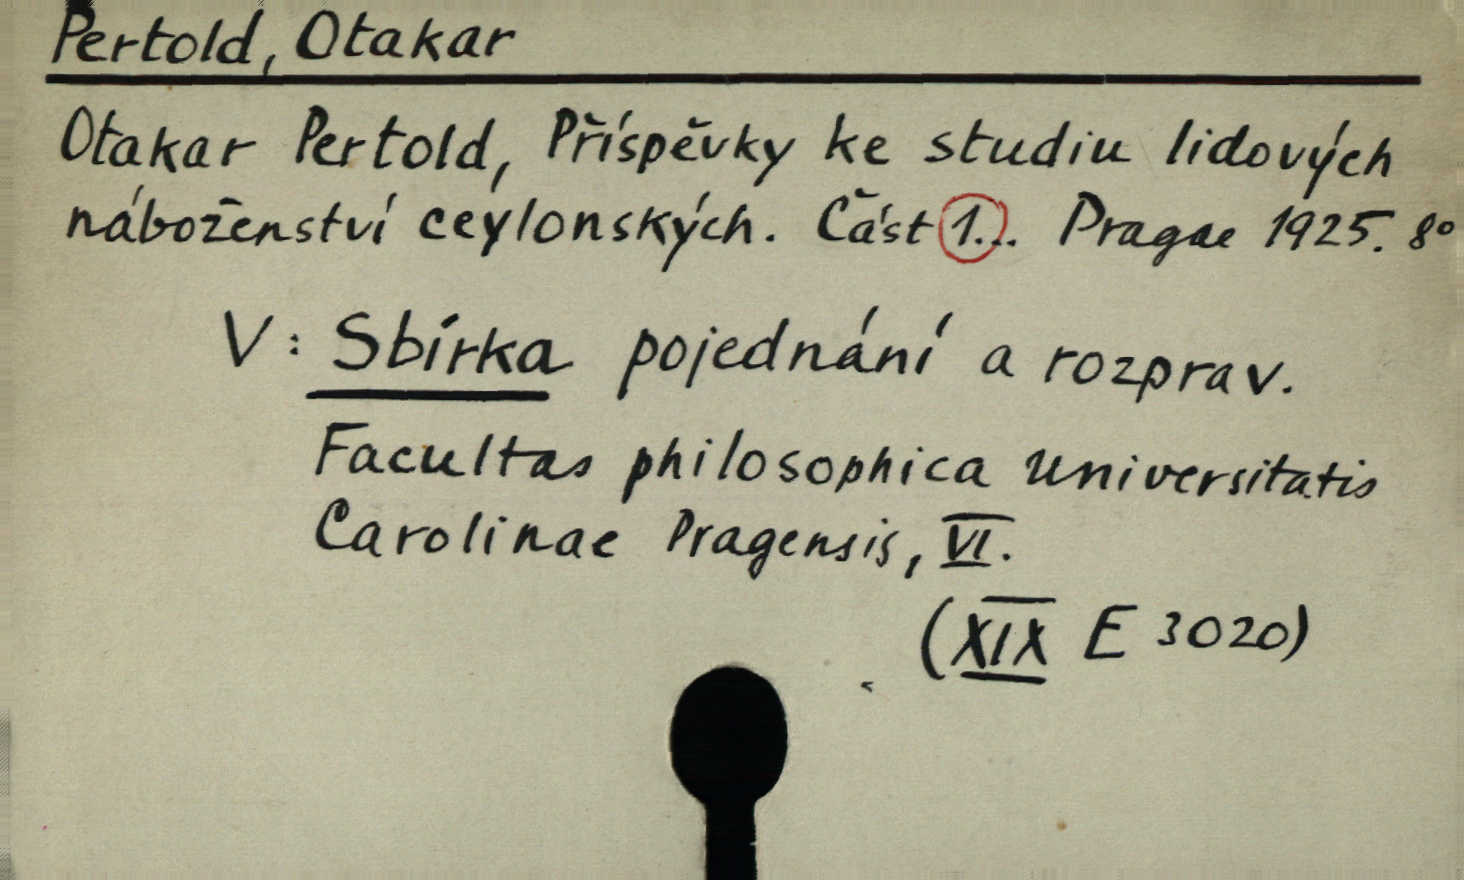 Pertold, Otakar
Otakar Pertold, Příspěvky ke studiu lidových
náboženství ceylonských. Část 1... Pragae 1925. 8°
V: Sbírka pojednání a rozprav.
Facultas philosophica universitatis
Carolinae Pragensis, VI.
(XIX E 3020)